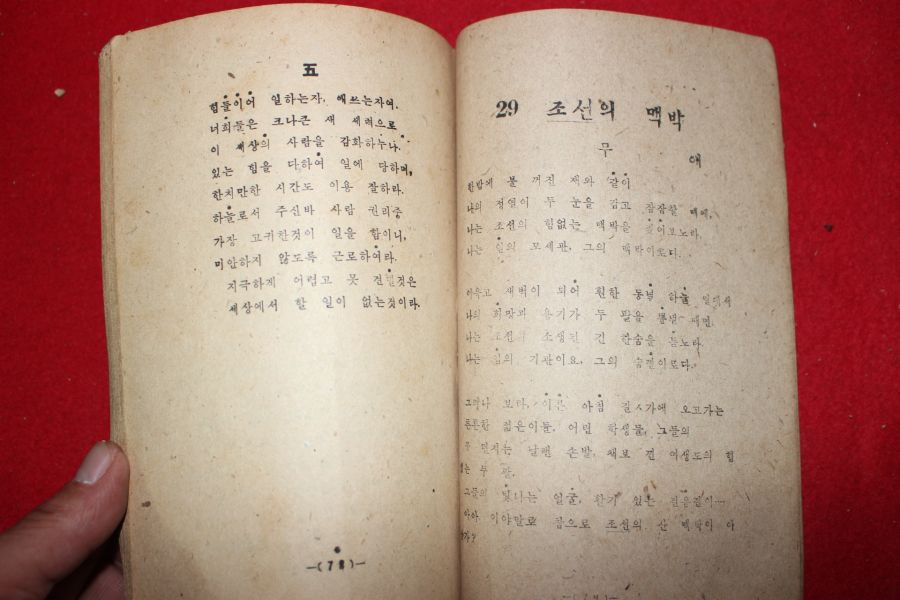 五
힘들이어 일하는자, 애쓰는자여.
너희들은 크나큰 새 세력으로
이 세상의 사람을 감화하누나.
있는 힘을 다하여 일에 당하며,
한치만한 시간도 이용 잘하라.
하늘로서 주신바 사람 권리중
가장 고귀한것이 일을 함이니,
미안하지 않도록 근로하여라.
지극하게 어렵고 못 견딜것은
세상에서 할 일이 없는것이라.
—(78)—
29 조선의 맥박
무 애
한밤에 불 꺼진 재와 같이
나의 정열이 두 눈을 감고 잠잠할 때에,
나는 조선의 힘없는 맥박을 짚어보노라.
나는 임의 모세관, 그의 맥박이로다.
이윽고 새벽이 되어 훤한 동녘 하늘 밑에서
나의 희망과 용기가 두 팔을 뽐낼 때면,
나는 조선의 소생된 긴 한숨을 듣노라.
나는 임의 기관이요, 그의 숨결이로다.
그러나 보라, 이른 아침 길가에 오고가는
튼튼한 젊은이들, 어린 학생들, 그들의
공 던지는 날랜 손발, 책보 낀 여생도의 힘
있는 두 팔,
그들의 빛나는 얼굴, 활기 있는 걸음걸이…
아아 이야말로 참으로 조선의 산 맥박이 아